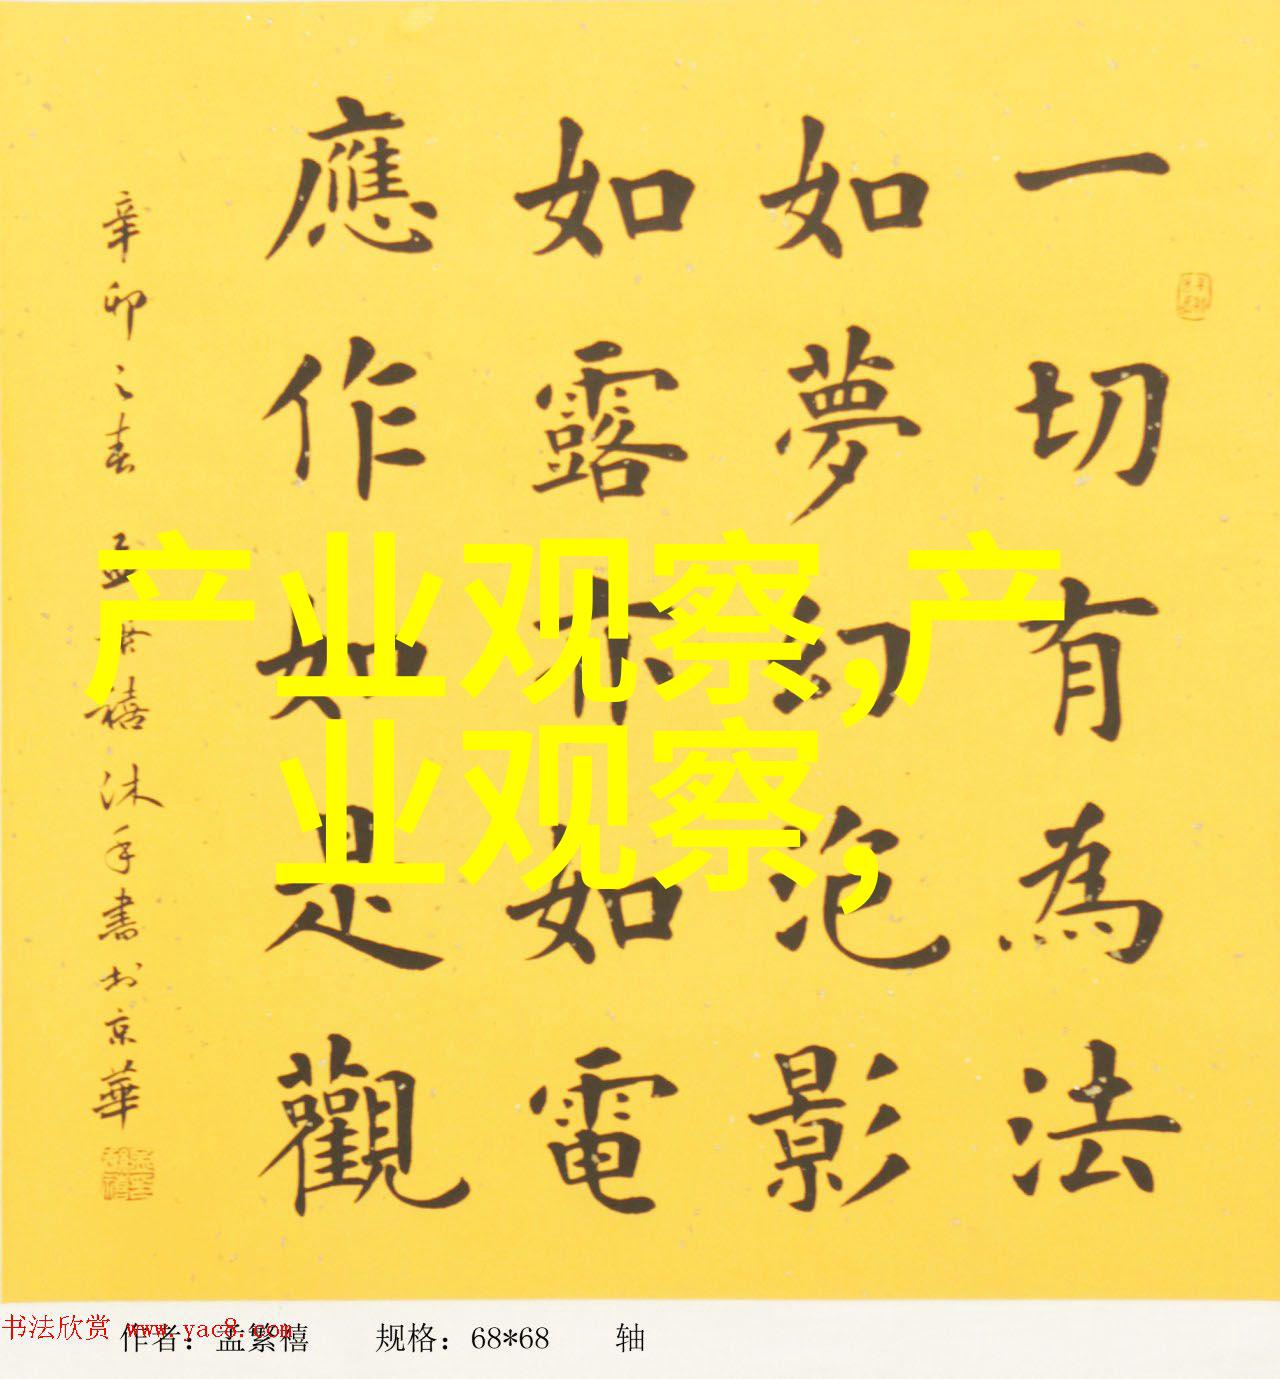 一切有為法
如夢幻泡影
如露亦如電
應作如是觀
辛卯之春 孟繁禧沐手書於京華
产业观察,产
业观察,
书法欣赏 www.yac8.com
作者：孟繁禧 规格：68*68 轴